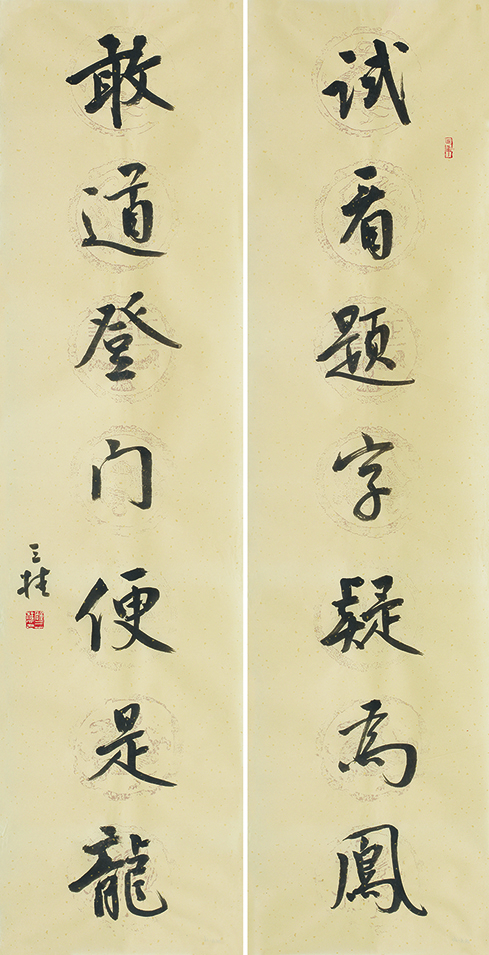 试看题字疑为鳳
敢道登门便是龍